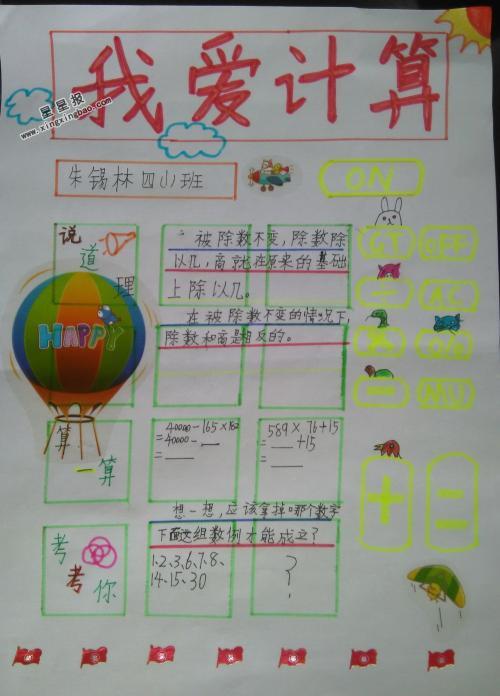 我爱计算
星星报
www.xingxingbao.com
朱锡林四小班
ON
说道理
被除数不变,除数除
以几,商就在原来的基础
上除以几。
GT OFF
HAPPY
AC
在被除数不变的情况下,
除数和商是相反的。
%
MU
算一算
40000-165×182
=40000-__
=__
589×76+15
=__+15
=__
+
=
想一想,应该拿掉哪个数字
下面这组数例才能成立?
考考你
1、2、3、6、7、8、
14、15、30
?